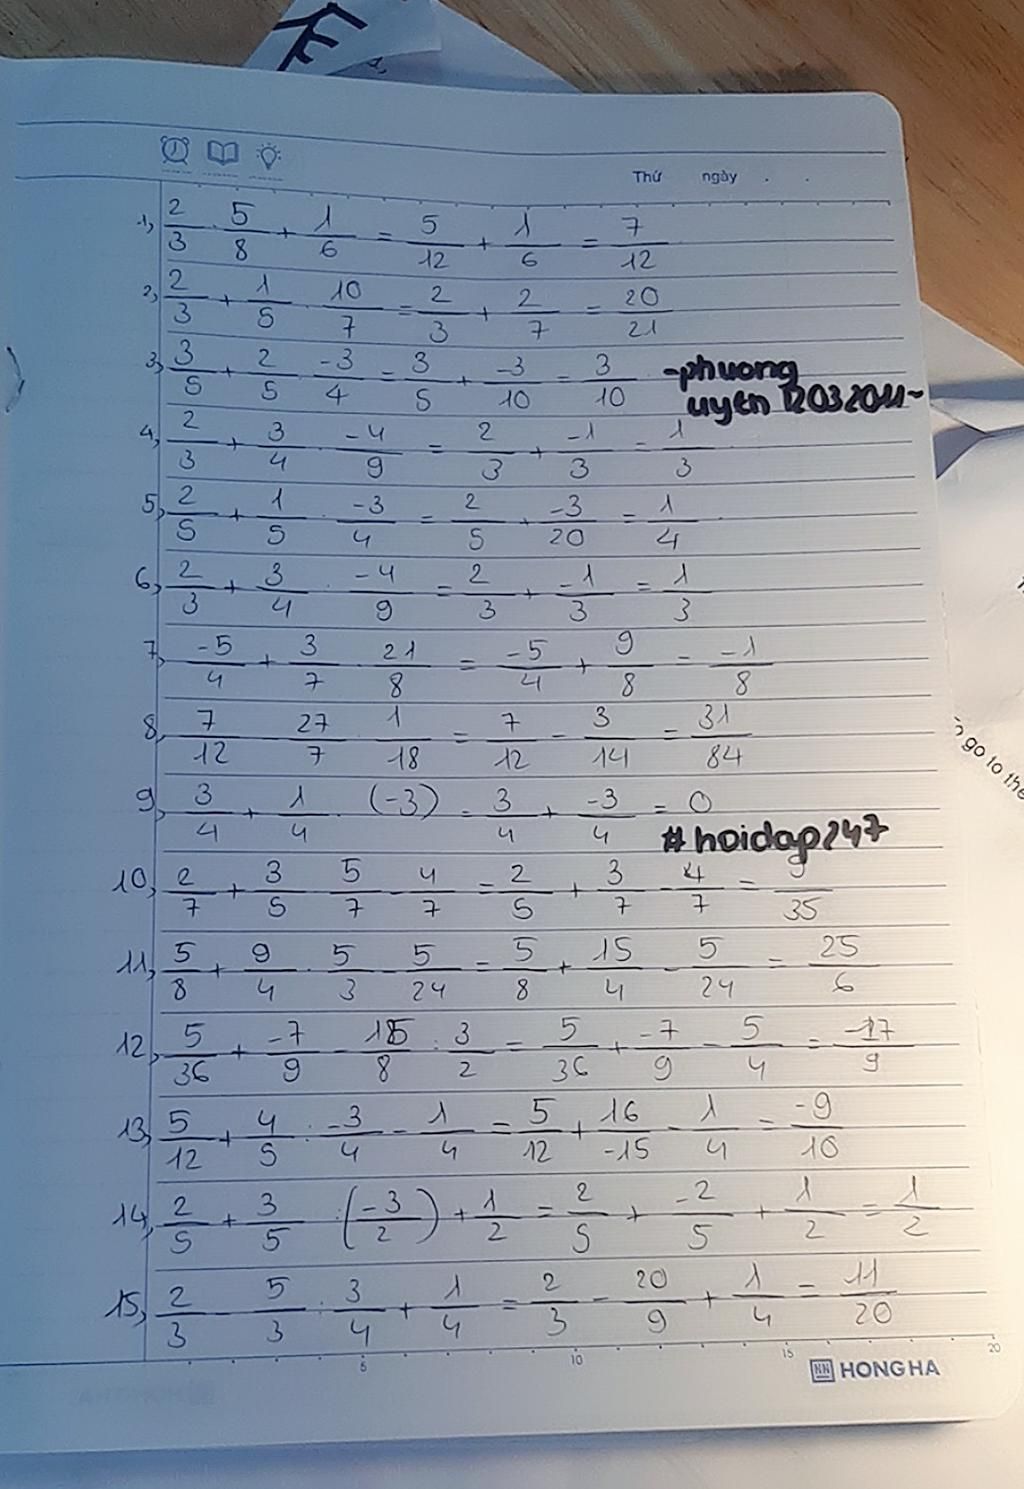 Thứ ngày . .
1, 2/3 . 5/8 + 1/6 = 5/12 + 1/6 = 7/12
2, 2/3 + 1/5 . 10/7 = 2/3 + 2/7 = 20/21
3, 3/5 + 2/5 . -3/4 = 3/5 + -3/10 = 3/10
~phuong
uyen 12032011~
4, 2/3 + 3/4 . -4/9 = 2/3 + -1/3 = 1/3
5, 2/5 + 1/5 . -3/4 = 2/5 + -3/20 = 1/4
6, 2/3 + 3/4 . -4/9 = 2/3 + -1/3 = 1/3
7, -5/4 + 3/7 . 21/8 = -5/4 + 9/8 = -1/8
8, 7/12 - 27/7 . 1/18 = 7/12 - 3/14 = 31/84
9, 3/4 + 1/4 . (-3) = 3/4 + -3/4 = 0
#hoidap247
10, 2/7 + 3/5 . 5/7 - 4/7 = 2/5 + 3/7 - 4/7 = 9/35
11, 5/8 + 9/4 . 5/3 - 5/24 = 5/8 + 15/4 - 5/24 = 25/6
12, 5/36 + -7/9 - 15/8 : 3/2 = 5/36 + -7/9 - 5/4 = -17/9
13, 5/12 + 4/5 : -3/4 - 1/4 = 5/12 + 16/-15 - 1/4 = -9/10
14, 2/5 + 3/5 : (-3/2) + 1/2 = 2/5 + -2/5 + 1/2 = 1/2
15, 2/3 - 5/3 : 3/4 + 1/4 = 2/3 - 20/9 + 1/4 = 11/20
5 10 15 20
HONG HA
go to the